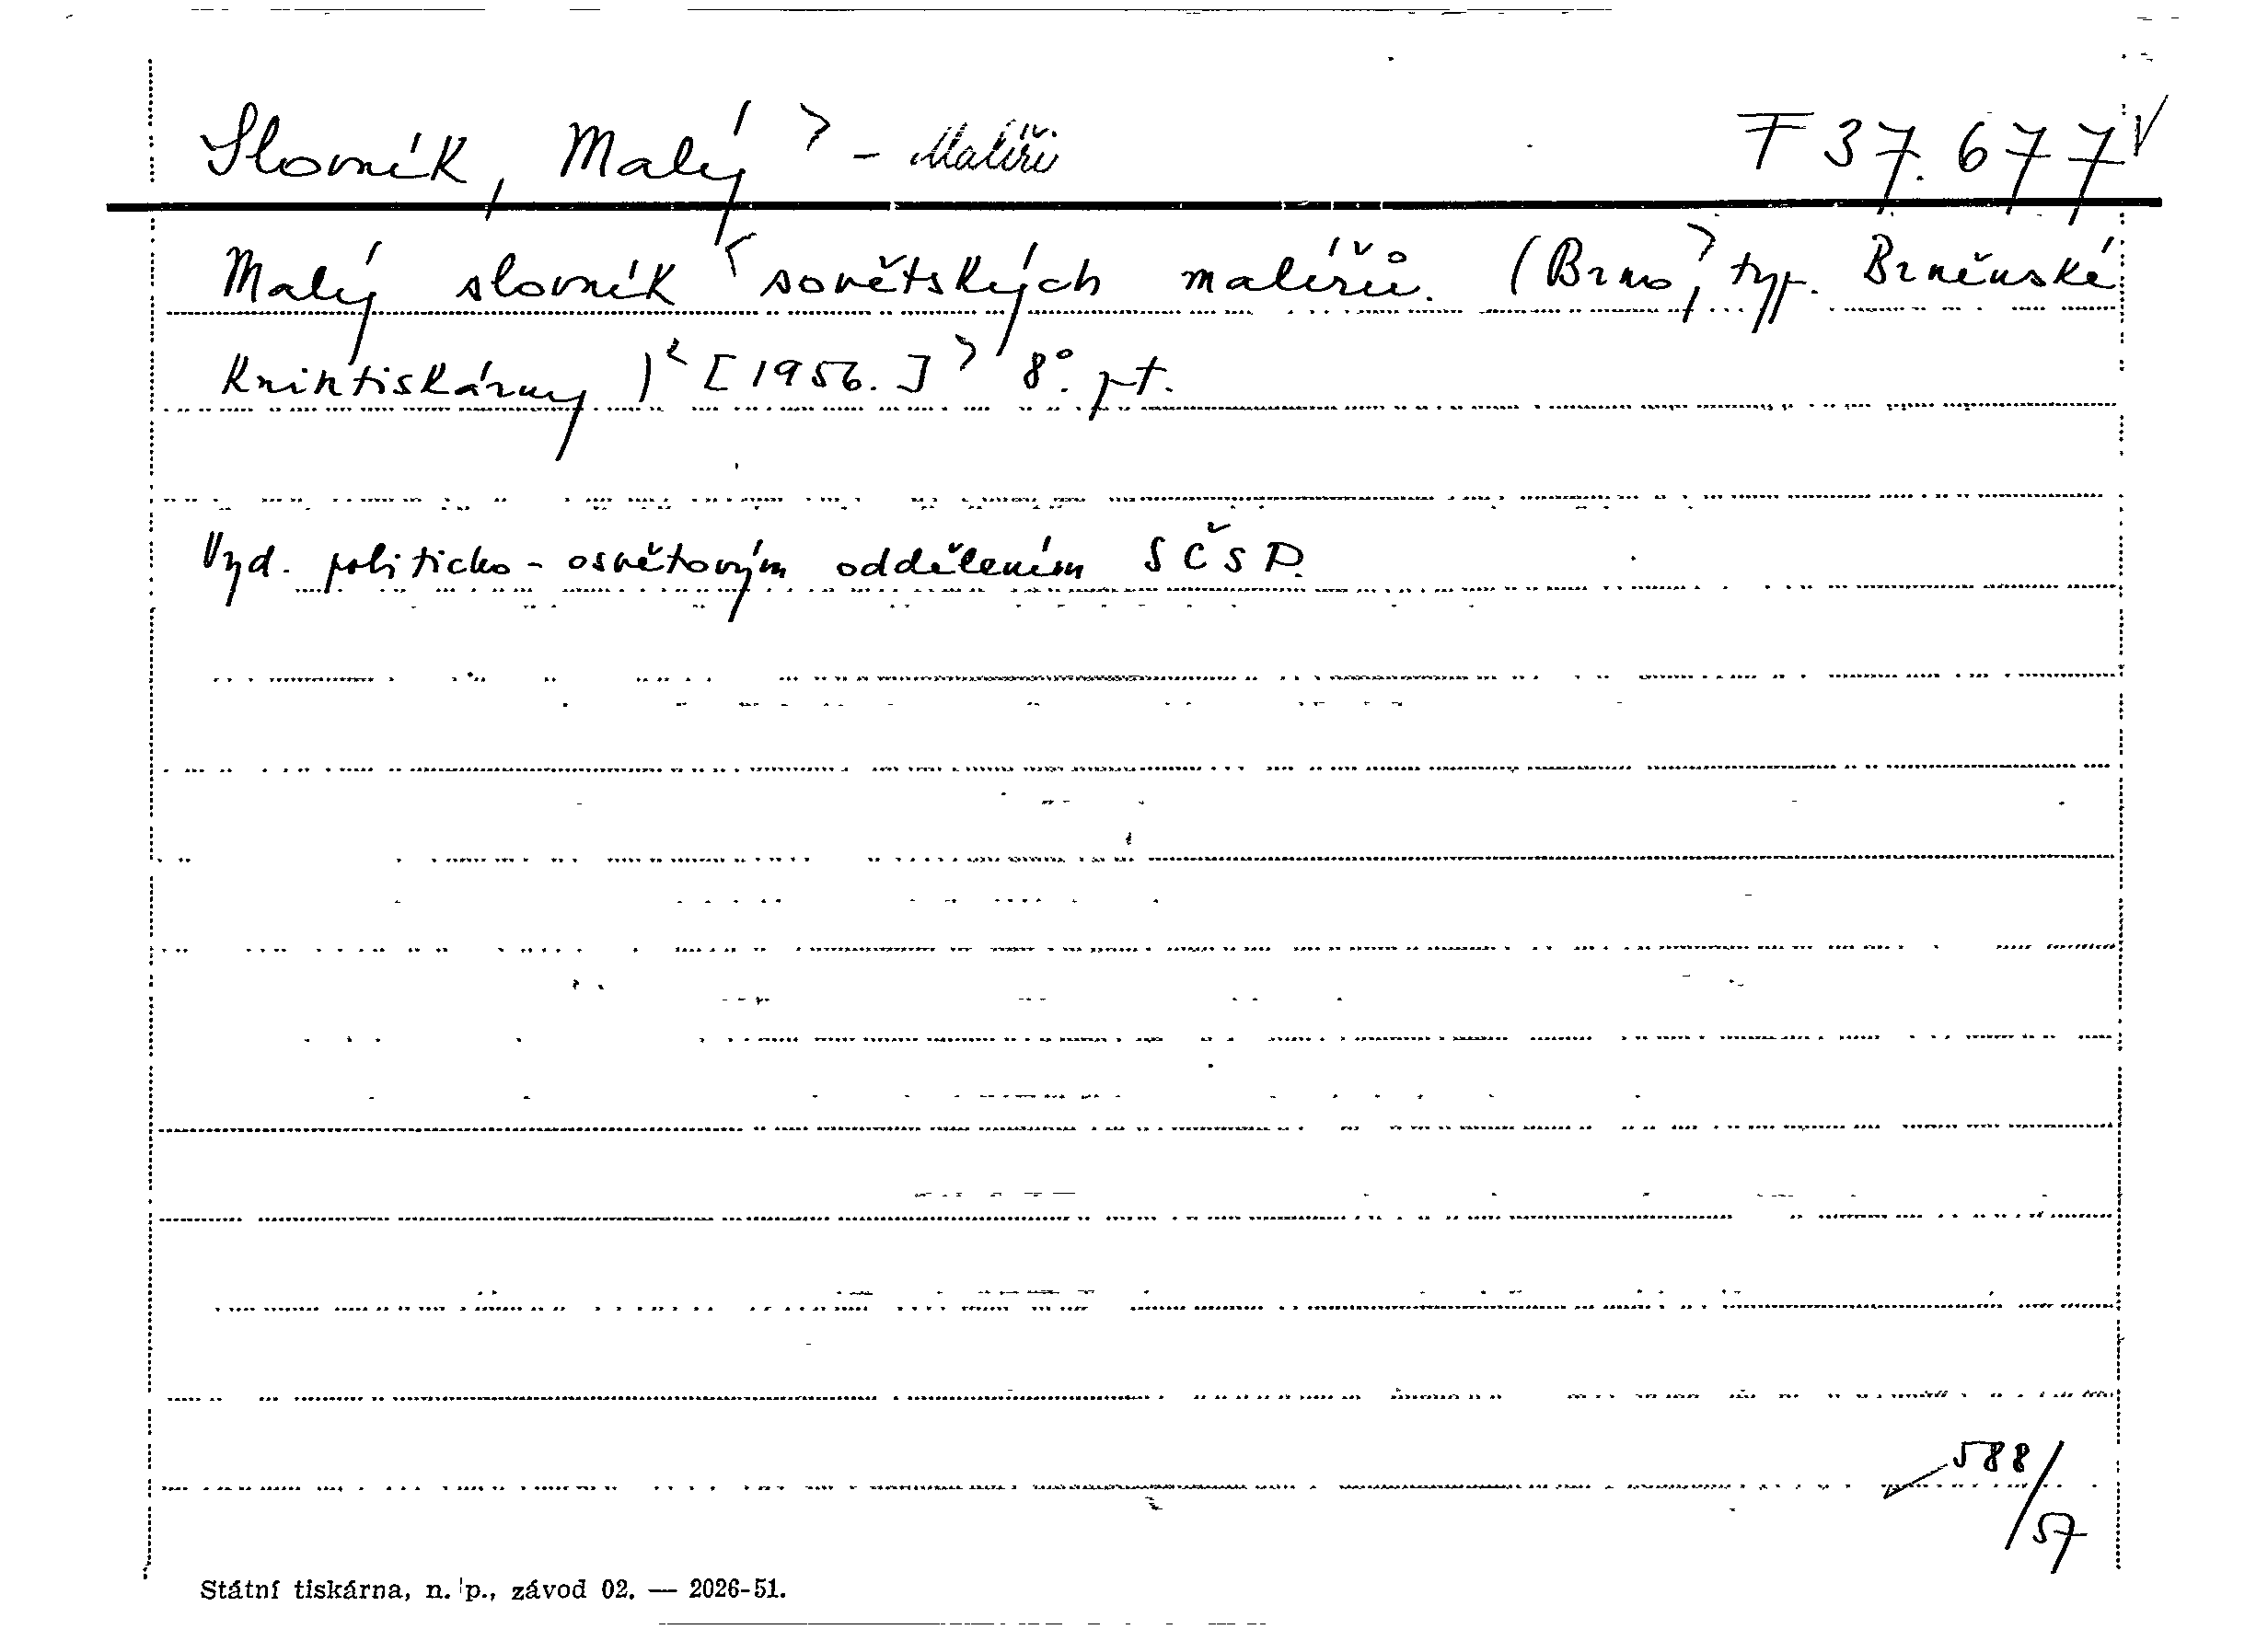 Slovník, Malý > - Malířů F 37.677 V
Malý slovník < sovětských malířů. (Brno, > typ. Brněnské
Knihtiskárny ) < [1956.] > 8°. pt.
Vyd. politicko-osvětovým oddělením SČSP.
588/57
Státní tiskárna, n. p., závod 02. — 2026-51.